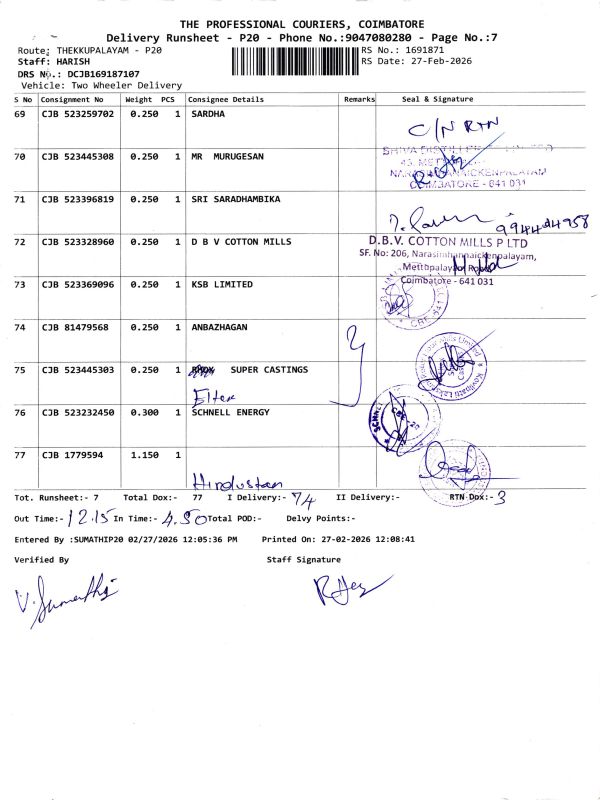 THE PROFESSIONAL COURIERS, COIMBATORE
Delivery Runsheet - P20 - Phone No.:9047080280 - Page No.:7
Route: THEKKUPALAYAM - P20
RS No.: 1691871
Staff: HARISH
RS Date: 27-Feb-2026
DRS No.: DCJB169187107
Vehicle: Two Wheeler Delivery
S No Consignment No Weight PCS Consignee Details Remarks Seal & Signature
69 CJB 523259702 0.250 1 SARDHA
C/N RTN
70 CJB 523445308 0.250 1 MR MURUGESAN
COIMBATORE - 641 031
71 CJB 523396819 0.250 1 SRI SARADHAMBIKA
9944494958
72 CJB 523328960 0.250 1 D B V COTTON MILLS
D.B.V. COTTON MILLS P LTD
SF. No: 206, Narasimhannaickenpalayam,
Mettupalayam Road,
Coimbatore - 641 031
73 CJB 523369096 0.250 1 KSB LIMITED
74 CJB 81479568 0.250 1 ANBAZHAGAN
75 CJB 523445303 0.250 1 SUPER CASTINGS
Elter
76 CJB 523232450 0.300 1 SCHNELL ENERGY
77 CJB 1779594 1.150 1
Hindustan
Tot. Runsheet:- 7 Total Dox:- 77 I Delivery:- 74 II Delivery:- RTN Dox:- 3
Out Time:- 12.15 In Time:- 4.50 Total POD:- Delvy Points:-
Entered By :SUMATHIP20 02/27/2026 12:05:36 PM Printed On: 27-02-2026 12:08:41
Verified By Staff Signature
V. Sumathi